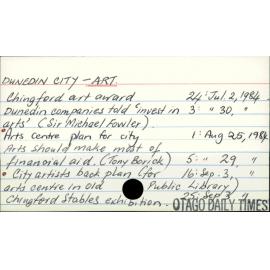 DUNEDIN CITY - ART.
Chingford art award 24: Jul. 2, 1984
Dunedin companies told 'invest in 3: " 30, "
arts' (Sir Michael Fowler).
Arts centre plan for city 1: Aug 25, 1984
Arts should make most of
financial aid. (Tony Borick) 5: " 29, "
City artists back plan (for 16: Sep. 3, "
arts centre in old Public Library)
Chingford Stables exhibition. 25: Sep 3, "
OTAGO DAILY TIMES